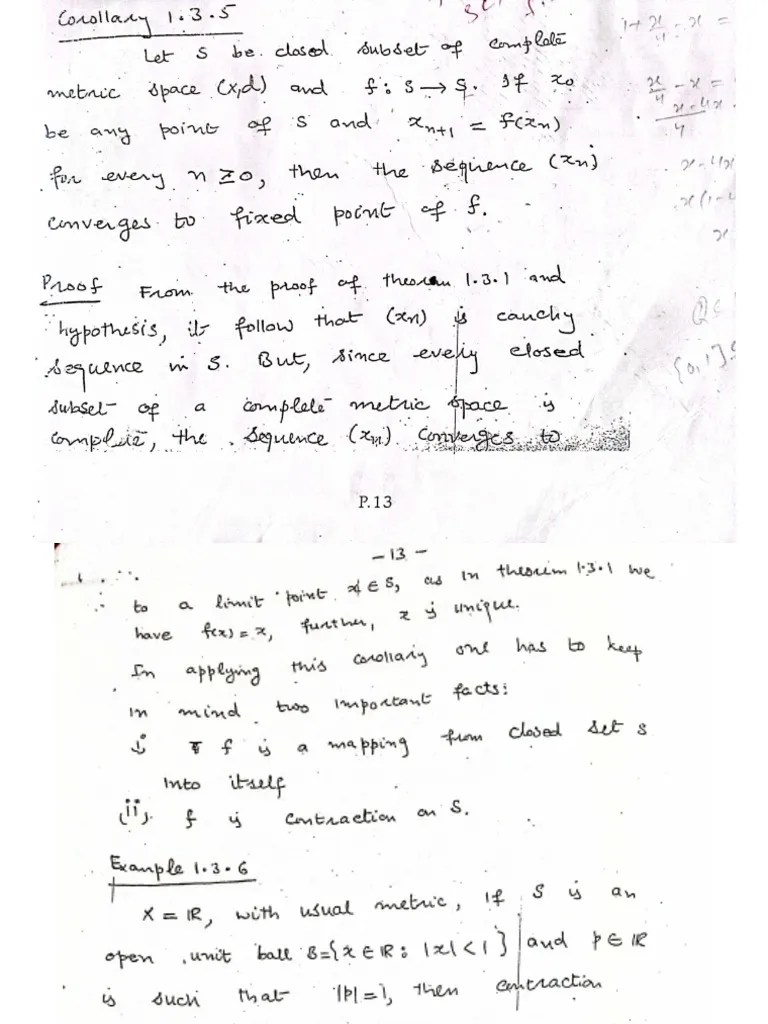 Corollary 1.3.5
Let S be closed subset of complete
metric space (X,d) and f: S → S. If x₀
be any point of S and xₙ₊₁ = f(xₙ)
for every n ≥ 0, then the sequence (xₙ)
converges to fixed point of f.
Proof From the proof of theorem 1.3.1 and
hypothesis, it follow that (xₙ) is cauchy
sequence in S. But, since every closed
subset of a complete metric space is
complete, the sequence (xₙ) converges to
P.13
-13-
to a limit point x ∈ S, as in theorem 1.3.1 we
have f(x) = x, further, x is unique.
In applying this corollary one has to keep
in mind two important facts:
i) f is a mapping from closed set S
into itself
(ii). f is contraction on S.
Example 1.3.6
X = IR, with usual metric, If S is an
open unit ball S={x ∈ IR: |x| < 1} and p ∈ IR
is such that |p| = 1, then contraction
1 + x/4 - x =
x/4 - x =
x-4x
4
x-4x